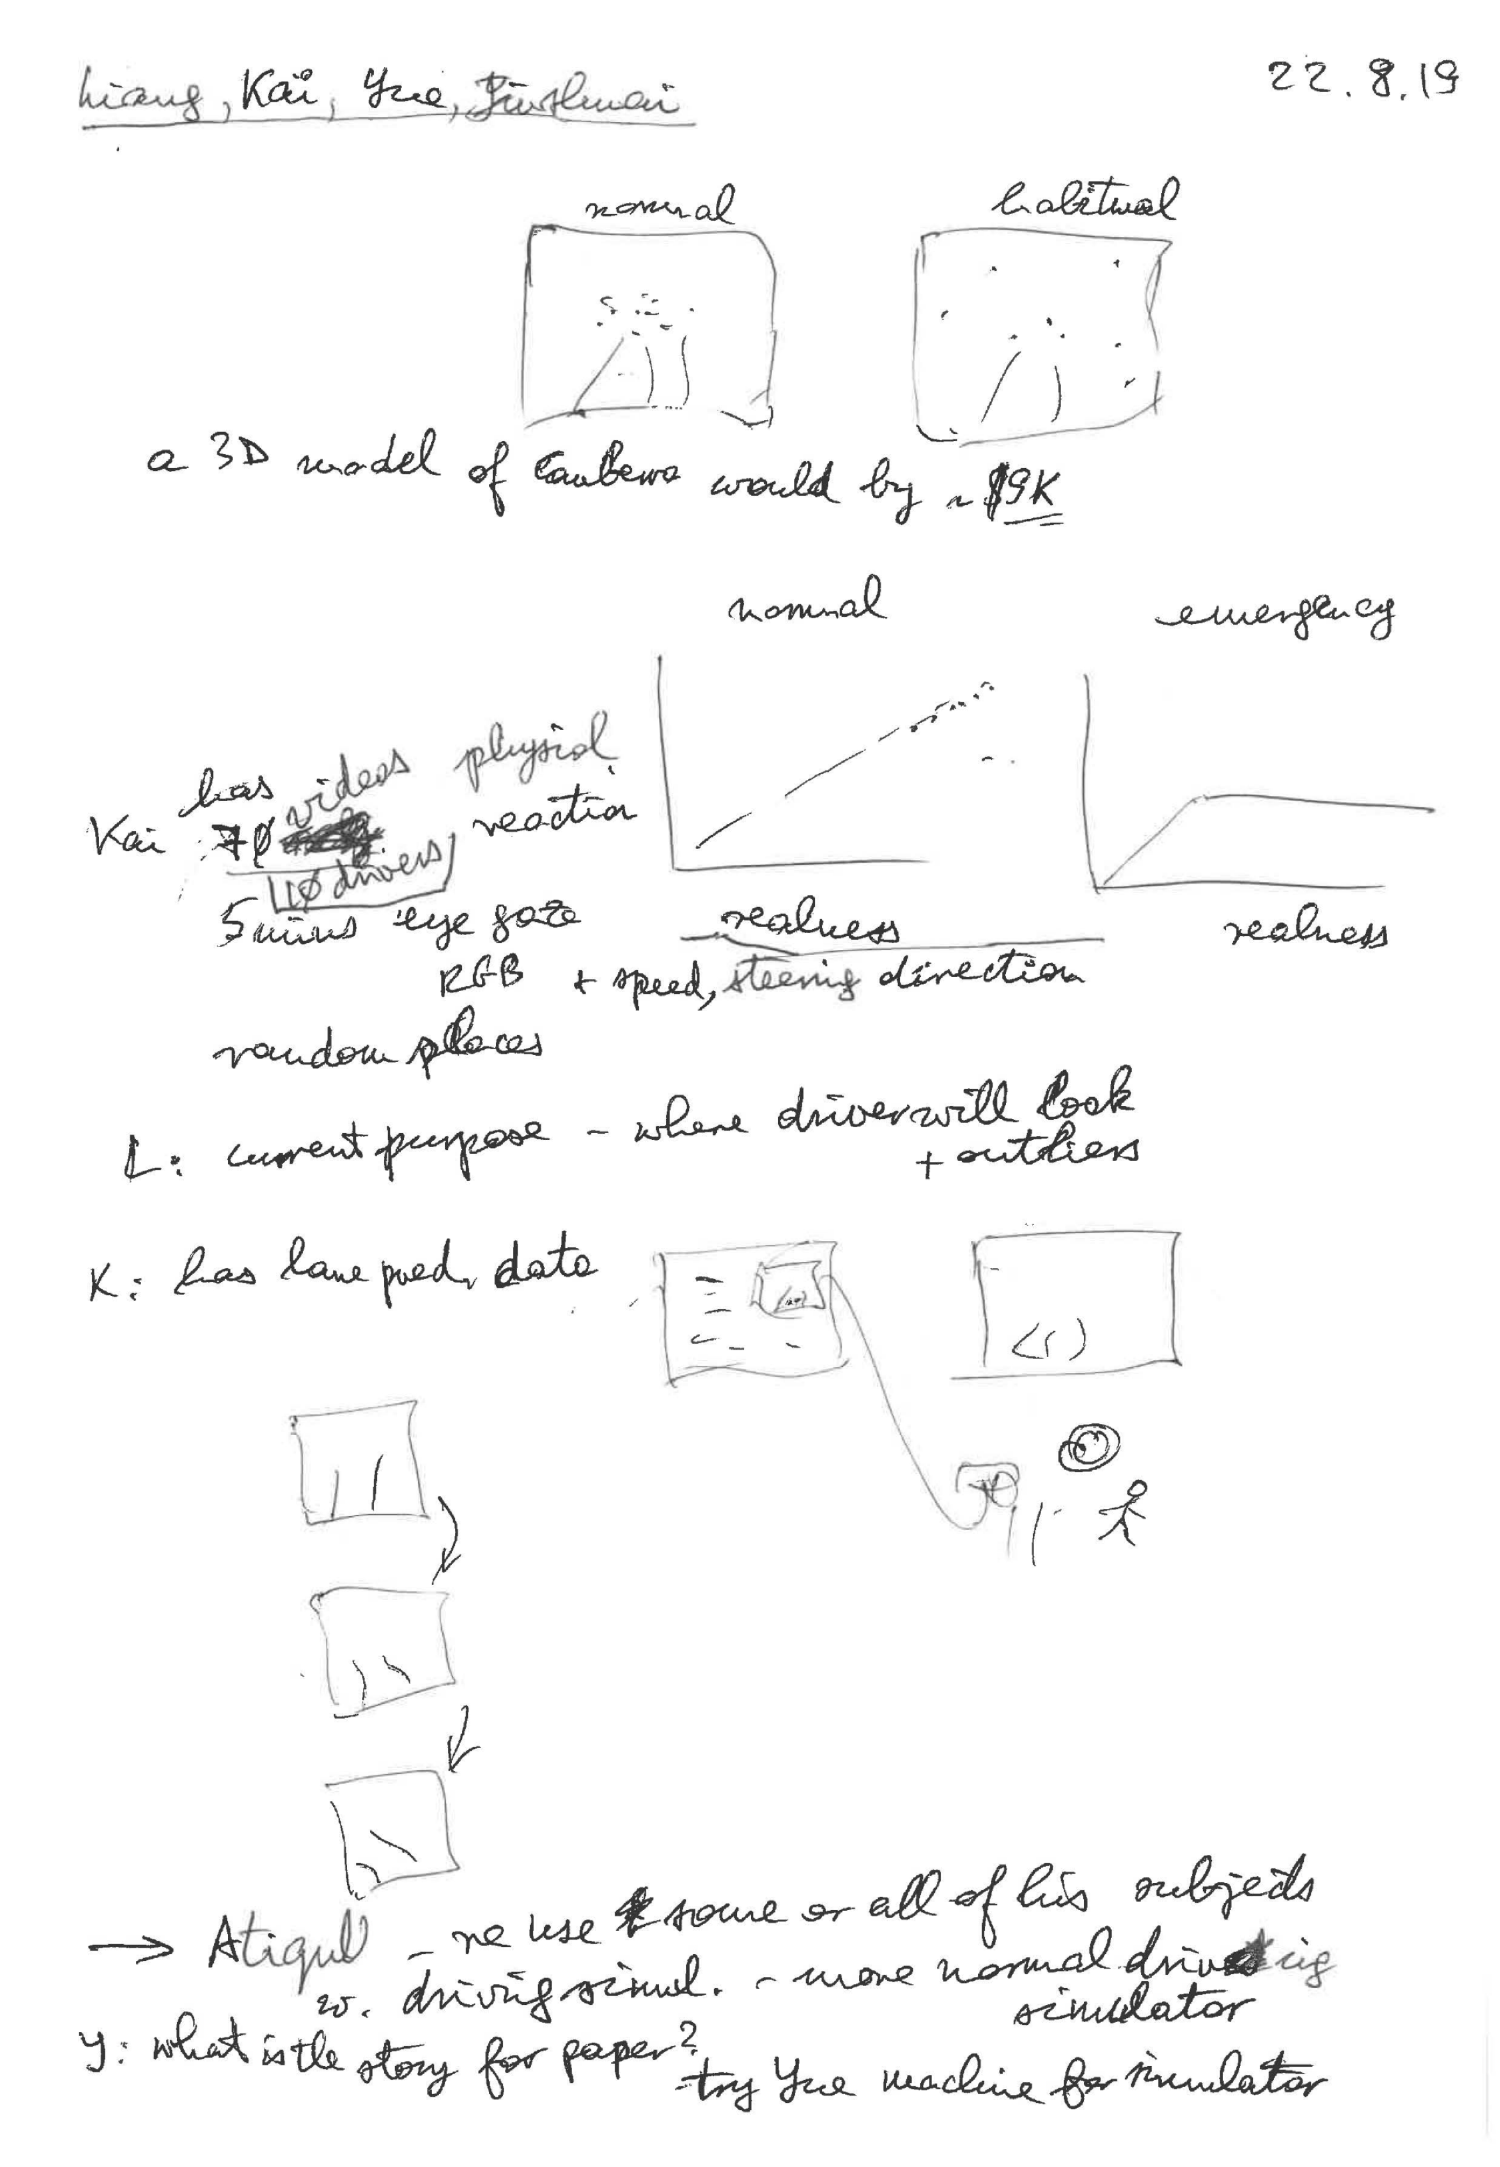 Liang, Kai, Yue, Jinshuai
22.8.19
normal
habitual
a 3D model of Canberra would by ~ $9K
normal
emergency
has videos physical
Kai 70 reaction
10 drivers
5 mins eye gaze
realness
realness
RGB + speed, steering direction
random places
L: current purpose - where driver will look
+ outliers
K: has lane pred. data
→ Atiqul - re use some or all of his subjects
w. driving simul. - more normal driving
simulator
Y: what is the story for paper?
- try Yue machine for simulator